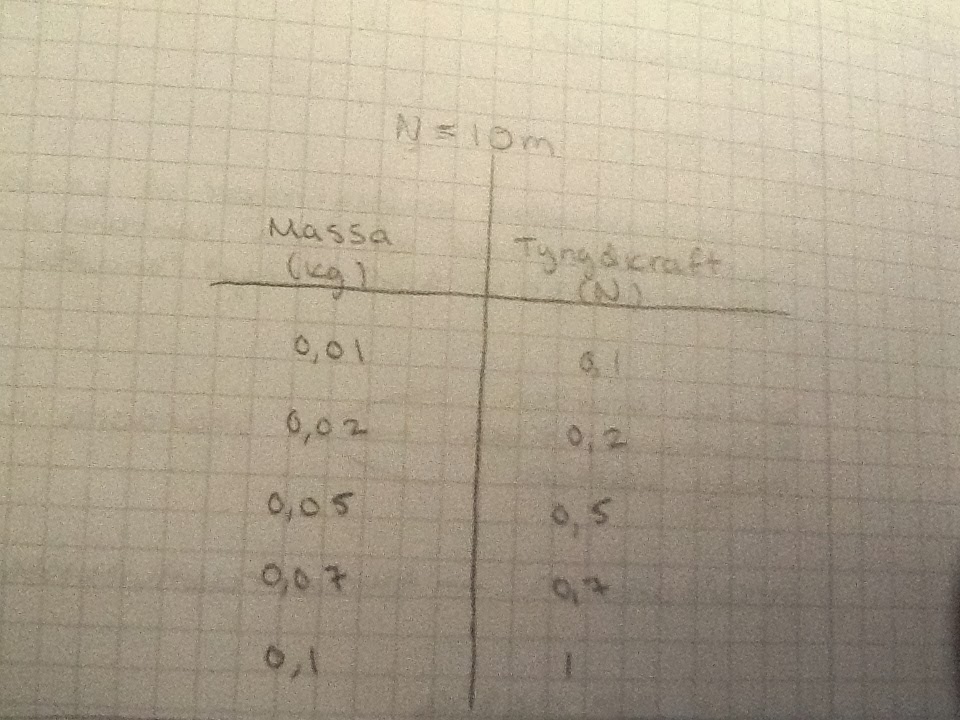 N = 10m
Massa Tyngdkraft
(kg) (N)
0,01 0,1
0,02 0,2
0,05 0,5
0,07 0,7
0,1 1